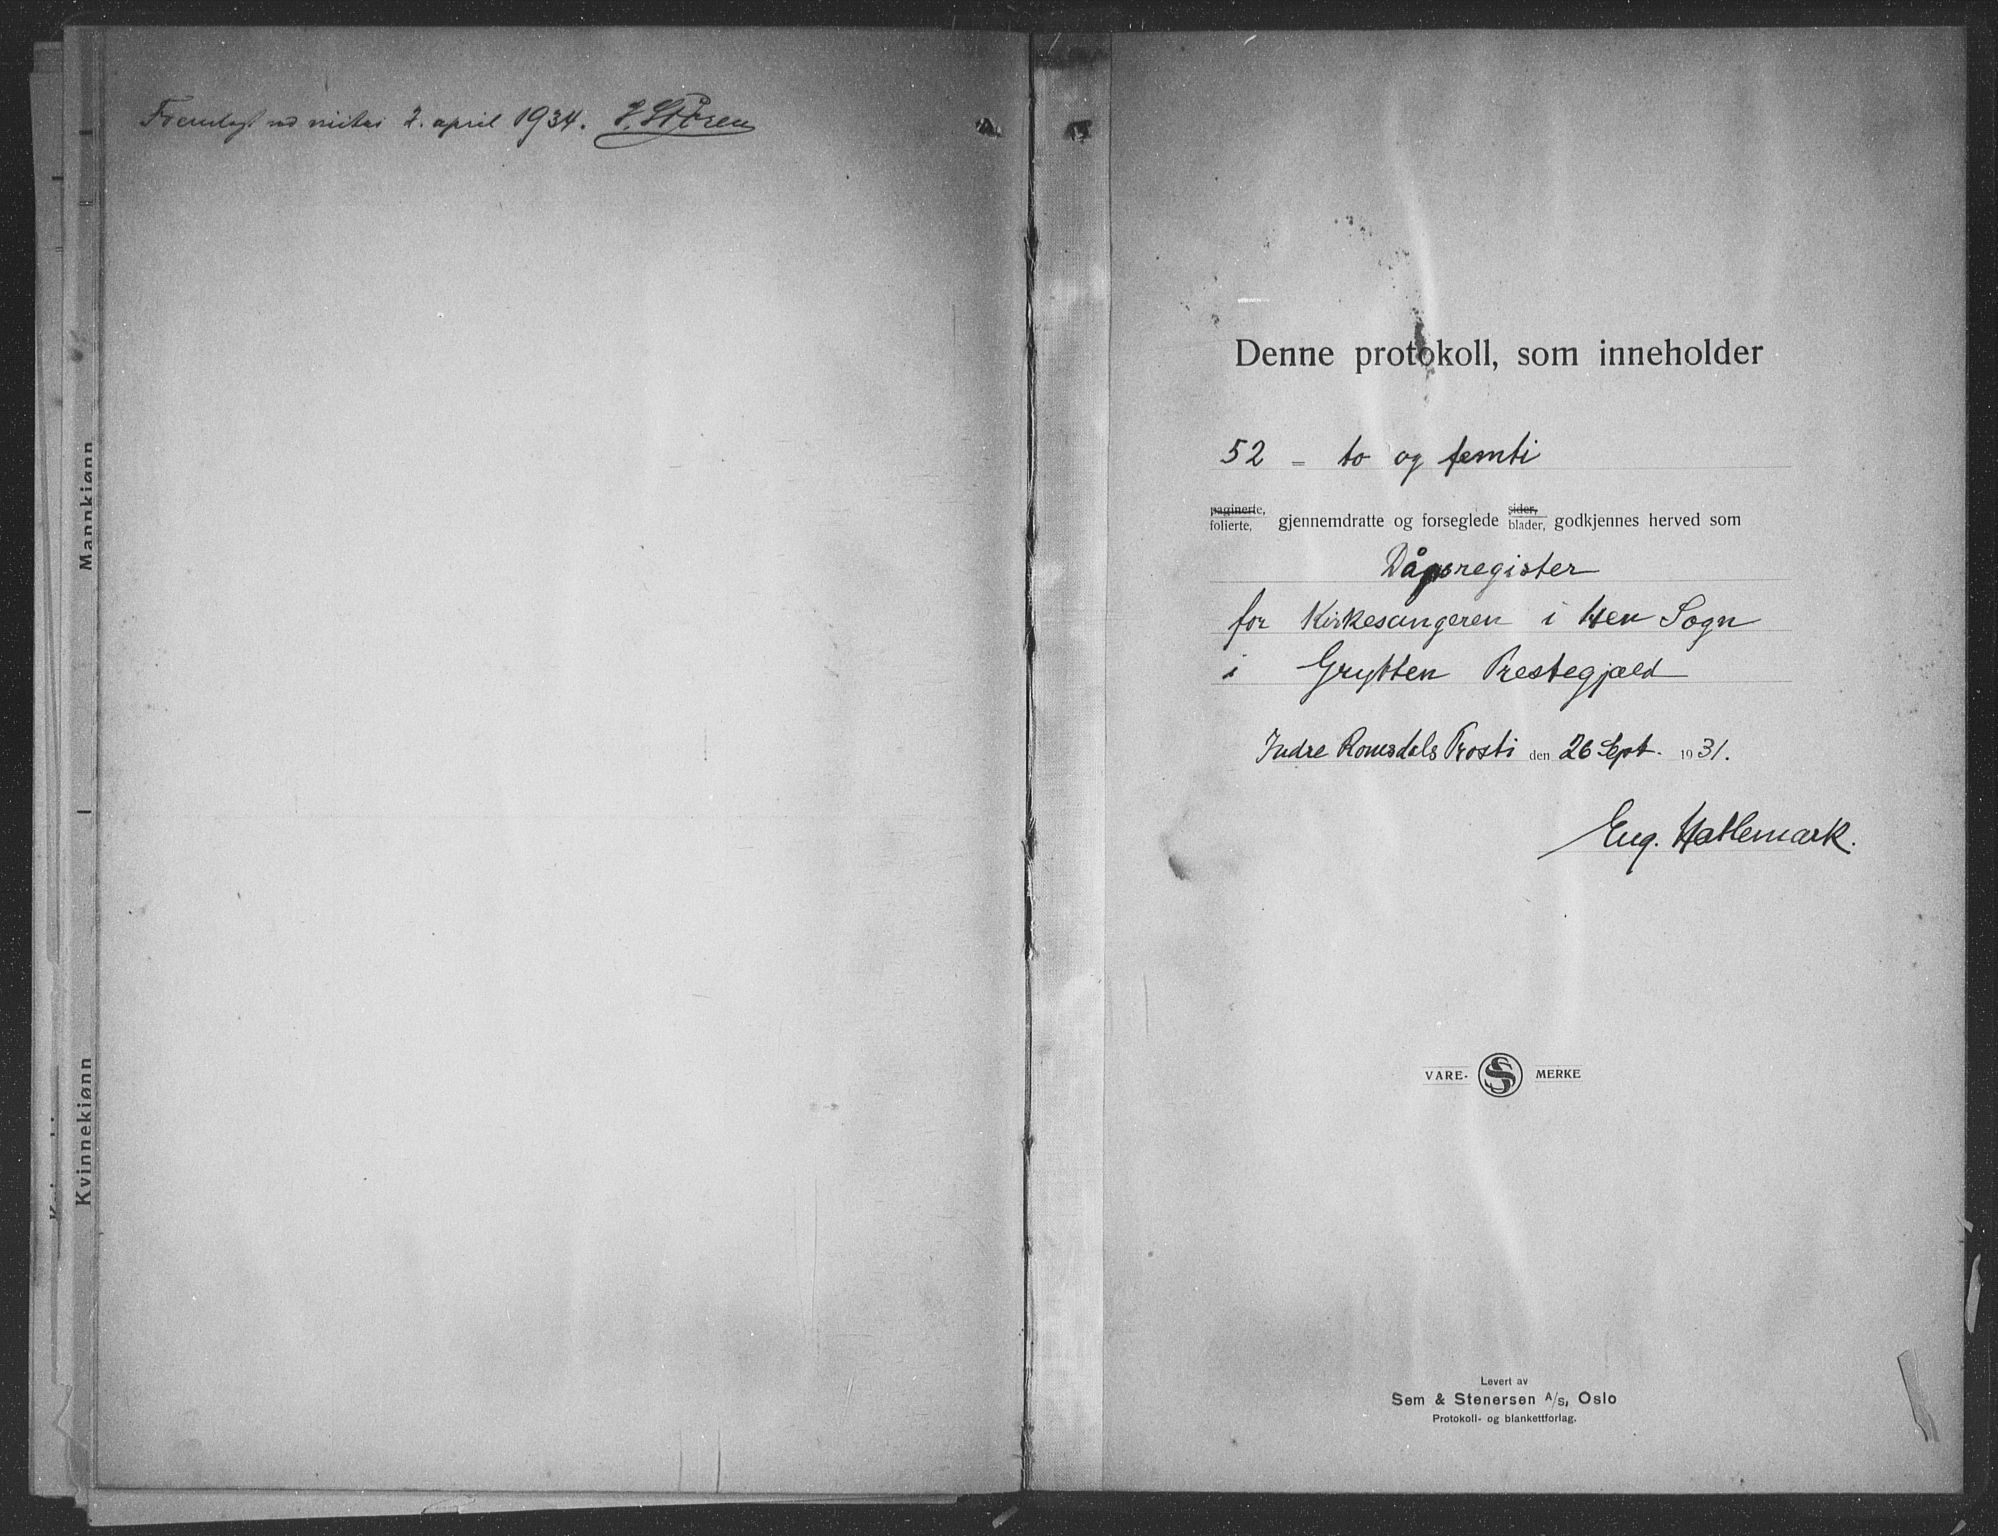 Fremlagt ved visitas 2. april 1934. H. Støren
Mannkjønn
Kvinnekjønn
Denne protokoll, som inneholder
52 = to og femti
paginerte, folierte, gjennemdratte og forseglede sider, blader, godkjennes herved som
Dåpsregister
for Kirkesangeren i Hen Sogn
i Grytten Prestegjæld
Indre Romsdals Prosti den 26 Sept. 1931.
Eug. Hatlemark.
VARE- S MERKE
Levert av
Sem & Stenersen A/s, Oslo
Protokoll- og blankettforlag.